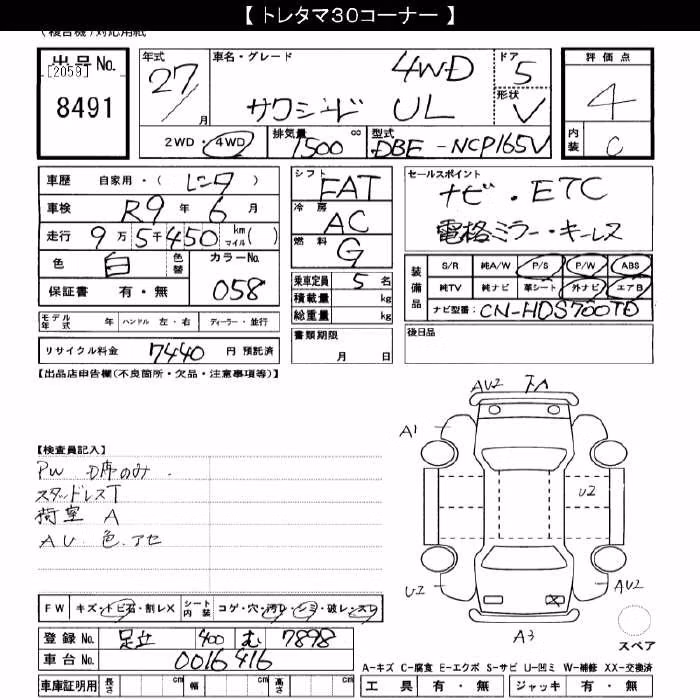 【 トレタマ30コーナー 】
(複合機)対応用紙
出品No.
[2059]
8491
年式 27 月
車名・グレード 4WD
サクシード UL
ドア 5
形状 V
評価点 4
内装 C
2WD・4WD 排気量 1500 cc 型式 DBE-NCP165V
車歴 自家用・(レンタ)
車検 R9年6月
走行 9万5千450 km マイル( )
色 白 色替 カラーNo. 058
保証書 有・無
モデル年式 年 ハンドル 左・右 ディーラー・並行
リサイクル料金 7440 円 預託済
シフト FAT
冷房 AC
燃料 G
乗車定員 5 名
積載量 kg
総重量 kg
書類期限
月 日
セールスポイント
ナビ・ETC
電格ミラー・キーレス
装備品
S/R 純A/W P/S P/W ABS
純TV 純ナビ 革シート 外ナビ エアB
ナビ型番: CN-HDS700TD
後日品
【出品店申告欄(不良箇所・欠品・注意事項等)】
【検査員記入】
PW D席のみ
スタッドレスT
荷室 A
AU 色アセ
AU2
A1
U2
U2
AU2
A3
スペア
FW キズ・トビ石・割レX シート内装 コゲ・穴・汚レ・シミ・破レ・スレ
登録No. 足立 400 む 7898
車台No. 0016416
車庫証明用 長さ cm 幅 cm 高さ cm
A-キズ C-腐食 E-エクボ S-サビ U-凹ミ W-補修 XX-交換済
工具 有・無 ジャッキ 有・無